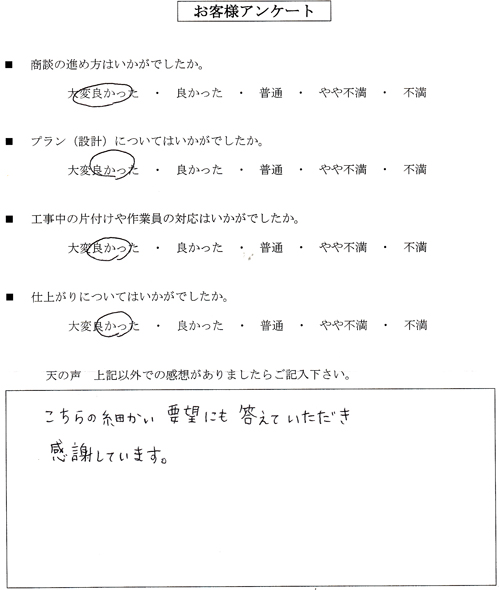 お客様アンケート
■ 商談の進め方はいかがでしたか。
大変良かった ・ 良かった ・ 普通 ・ やや不満 ・ 不満
■ プラン（設計）についてはいかがでしたか。
大変良かった ・ 良かった ・ 普通 ・ やや不満 ・ 不満
■ 工事中の片付けや作業員の対応はいかがでしたか。
大変良かった ・ 良かった ・ 普通 ・ やや不満 ・ 不満
■ 仕上がりについてはいかがでしたか。
大変良かった ・ 良かった ・ 普通 ・ やや不満 ・ 不満
天の声 上記以外での感想がありましたらご記入下さい。
こちらの細かい要望にも答えていただき
感謝しています。